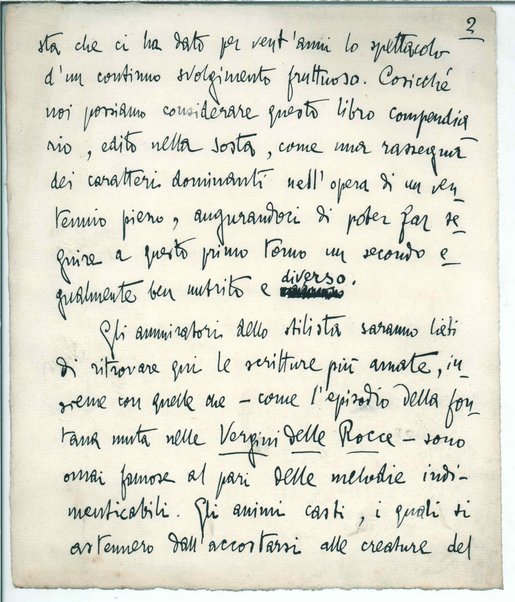 2
sta che ci ha dato per vent'anni lo spettacolo
d'un continuo svolgimento fruttuoso. Cosicché
noi possiamo considerare questo libro compendia
rio, edito nella sosta, come una rassegna
dei caratteri dominanti nell'opera di un ven-
tennio pieno, augurandoci di poter far se-
guire a questo primo tomo un secondo e-
gualmente ben nutrito e diverso.
Gli ammiratori dello stilista saranno lieti
di ritrovare qui le scritture più amate, in-
sieme con quelle che – come l'episodio della fon-
tana muta nelle Vergini delle Rocce – sono
omai famose al pari delle melodie indi-
menticabili. Gli animi casti, i quali si
astennero dall'accostarsi alle creature del